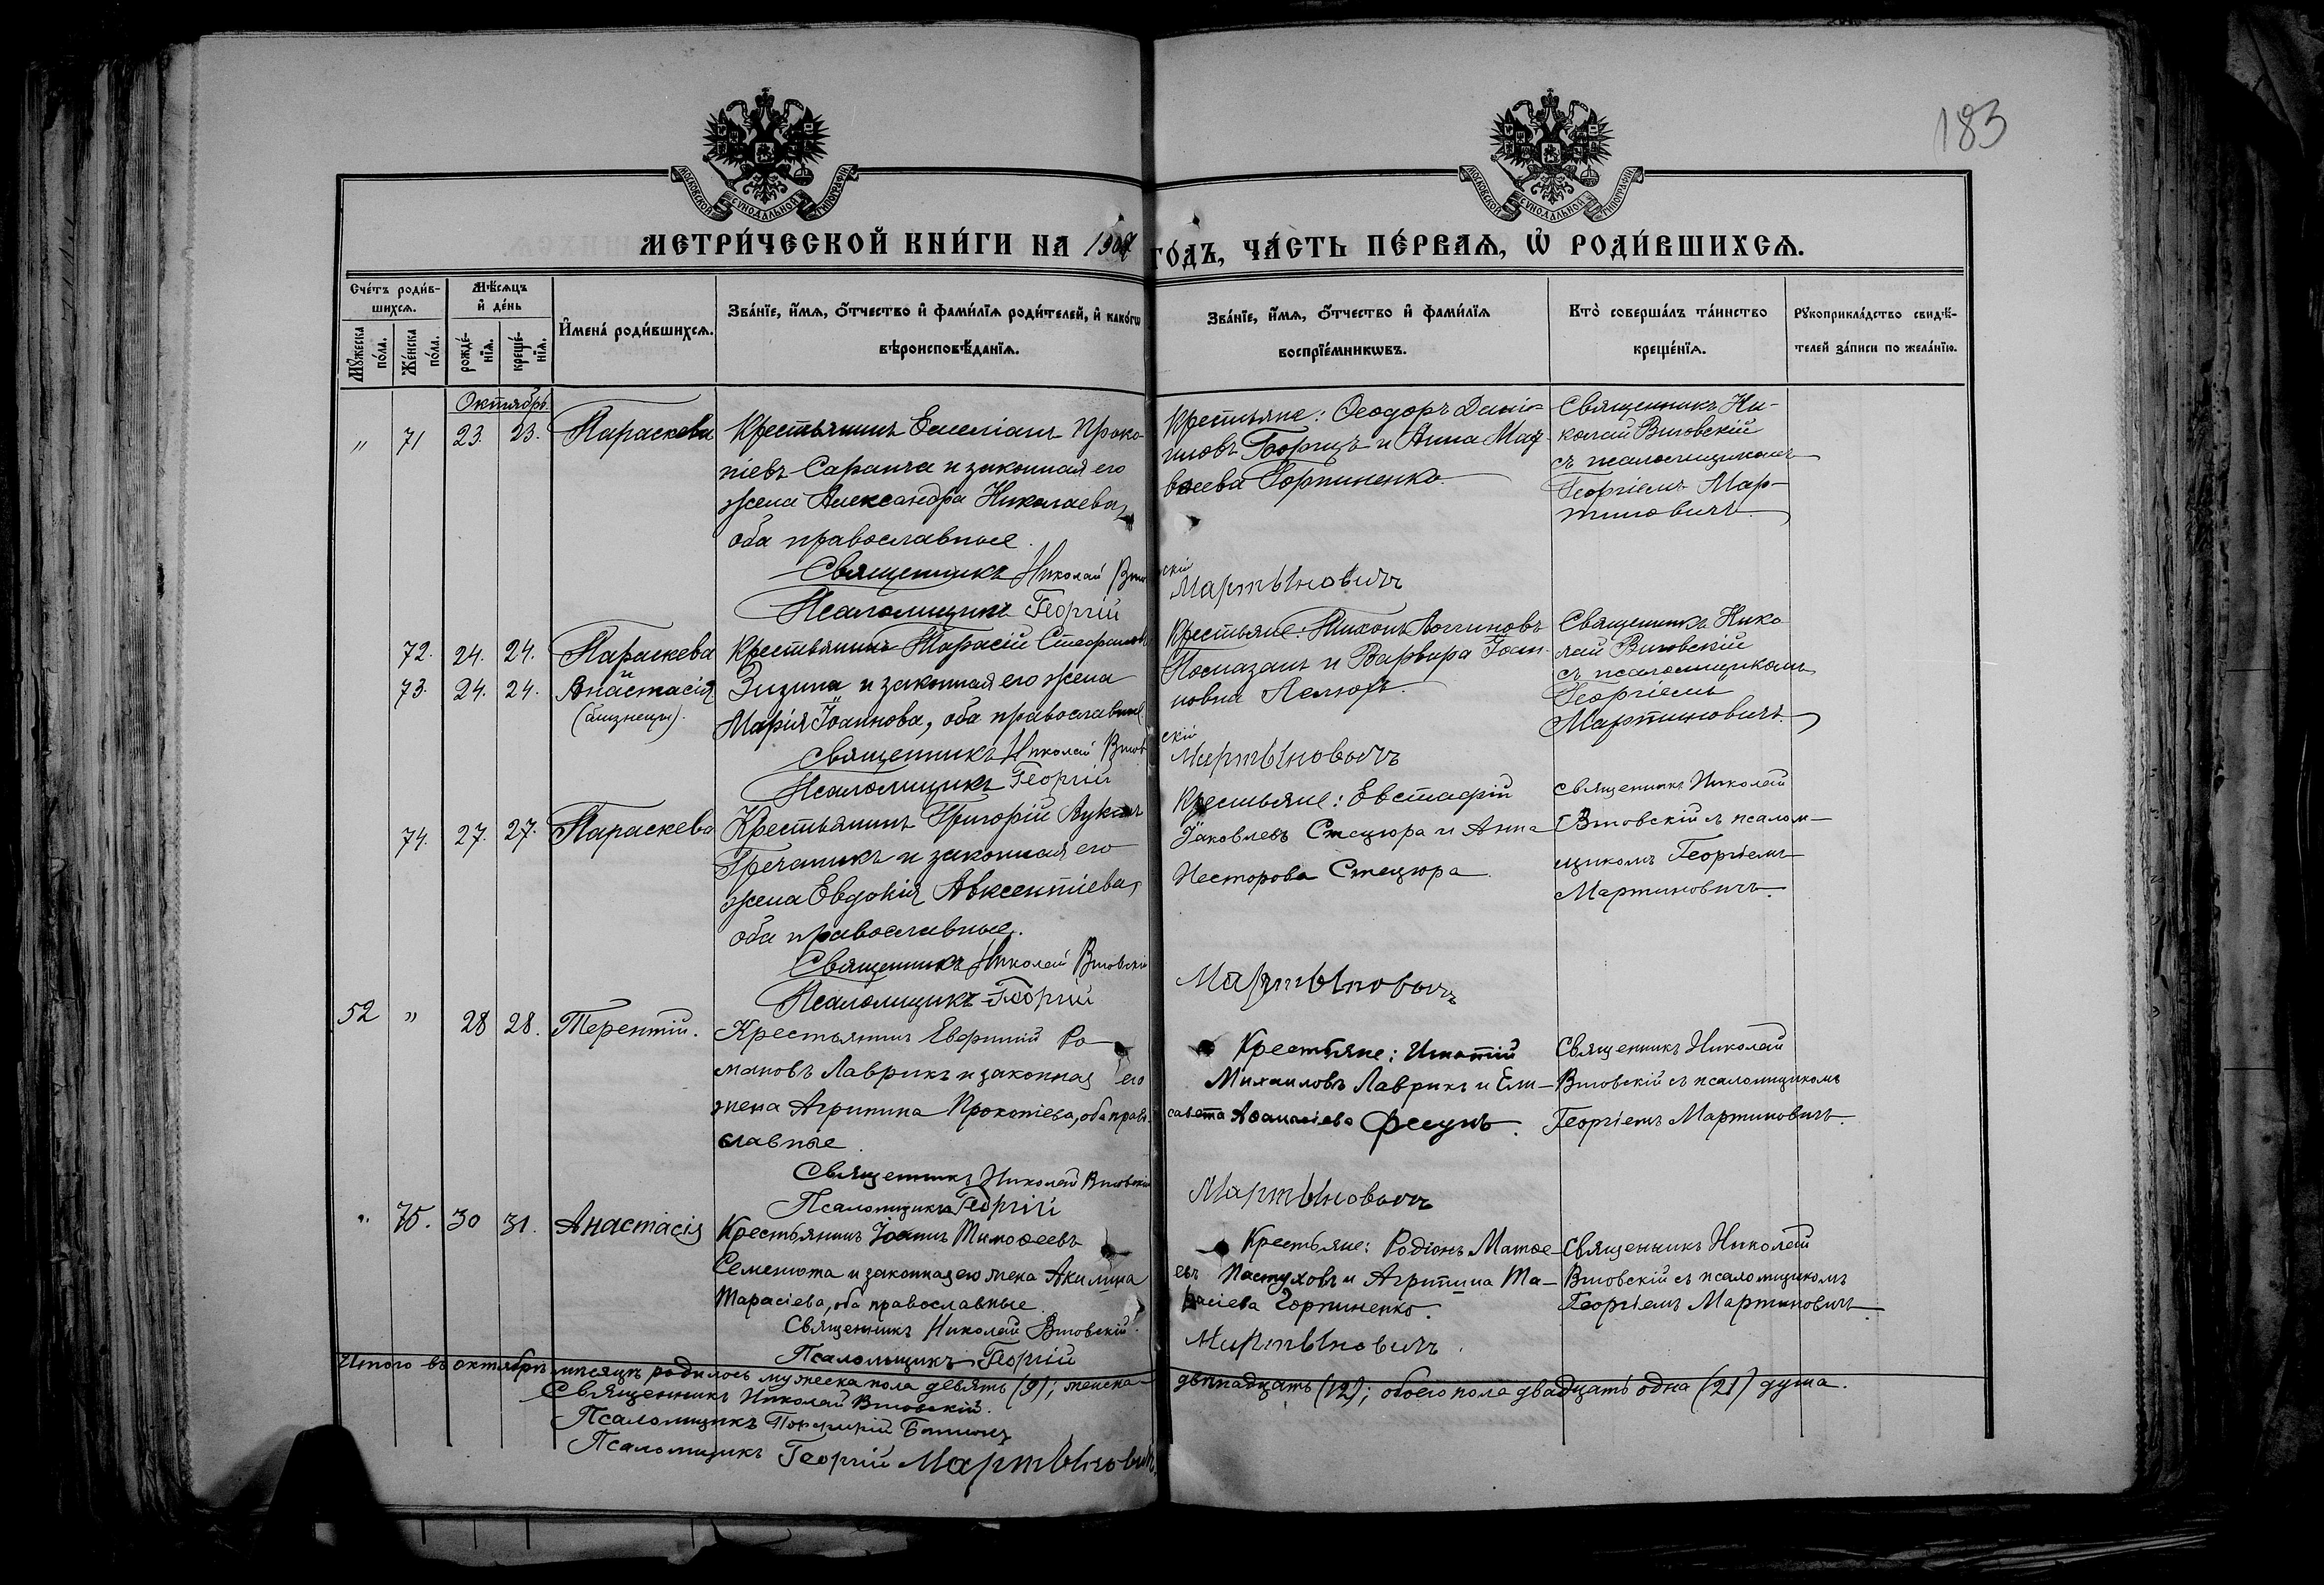 183
МОСКОВСКОЙ СѴНОДАЛЬНОЙ ТИПОГРАФІИ
МОСКОВСКОЙ СѴНОДАЛЬНОЙ ТИПОГРАФІИ
МЕТРИ́ЧЕСКОЙ КНИ́ГИ НА ГО́ДЪ, ЧА́СТЬ ПЕ́РВАѦ, Ѽ РОДИ́ВШИХСѦ.
Сче́тъ роди́в-
шихсѧ.
Мꙋ́жеска по́ла.
Же́нска по́ла.
Мѣ́сѧцъ и҆ де́нь
рожде́-
нїѧ.
креще́-
нїѧ.
И҆мена̀ роди́вшихсѧ.
Зва́нїе, и҆́мѧ, ѻ҆́тчество и҆ фами́лїѧ роди́телей, и҆ како́гѡ
вѣроисповѣ́данїѧ.
Зва́нїе, и҆́мѧ, ѻ҆́тчество и҆ фами́лїѧ
воспрїе́мникѡвъ.
Кто̀ соверша́лъ та́инство
креще́нїѧ.
Рꙋкоприкла́дство свидѣ́-
телей за́писи по жела́нїю.
Октябрь
" 71 23. 23. Параскева
Крестьянинъ Емеліанъ Проко-
піевъ Саранча и законная его
жена Александра Николаева,
оба православные.
Священникъ Николай
Псаломщикъ Георгій Мартыновичъ
Крестьяне: Ѳеодоръ Дані-
иловъ и Анна Мат-
вѣева Горпиненко.
Священникъ Ни-
колай
съ псаломщикомъ
Георгіемъ Мар-
тиновичъ.
72. 24. 24. Параскева
и
73. 24. 24. Анастасія
(близнецы).
Крестьянинъ Тарасій Стефановъ
Зизина и законная его жена
Марія Іоаннова, оба православные
Священникъ Николай
Псаломщикъ Георгій Мартыновичъ
Крестьяне: Логгиновъ
и Варвара Іоан-
новна
Священникъ Нико
лай
съ псаломщикомъ
Георгіемъ
Мартиновичъ.
74. 27. 27. Параскева
Крестьянинъ Григорій Лукинъ
Гречаникъ и законная его
жена Евдокія Авксентіева,
оба православные.
Священникъ Николай
Псаломщикъ Георгій Мартыновичъ
Крестьяне: Евстафій
Іаковлевъ Стецюра и Анна
Несторова Стецюра.
Священникъ Николай
съ псалом-
щикомъ Георгіемъ
Мартиновичъ.
52 " 28 28. Терентій.
Крестьянинъ Евфимій Ро-
мановъ Лаврикъ и законная его
жена Агрипина Прокопіева, оба право-
славные
Священникъ Николай
Псаломщикъ Георгій Мартыновичъ
Крестьяне: Игнатій
Михаиловъ Лаврикъ и Ели-
савета Аѳанасіева Фесунъ.
Священникъ Николай
съ псаломщикомъ
Георгіемъ Мартиновичъ.
" 75. 30 31. Анастасія
Крестьянинъ Іоаннъ Тимоѳеевъ
Семенюта и законная его жена Акилина
Тарасіева, оба православные.
Священникъ Николай
Псаломщикъ Георгій Мартыновичъ
Крестьяне: Родіонъ Матѳе-
евъ Пастуховъ и Агрипина Та-
расіева Горпиненко.
Священникъ Николай
съ псаломщикомъ
Георгіемъ Мартиновичъ.
Итого въ октябрѣ мѣсяцѣ родилось мужеска пола девять (9); женска двѣнадцать (12); обоего пола двадцать одна (21) душа.
Священникъ Николай
Псаломщикъ Порфирій
Псаломщикъ Георгій Мартыновичъ